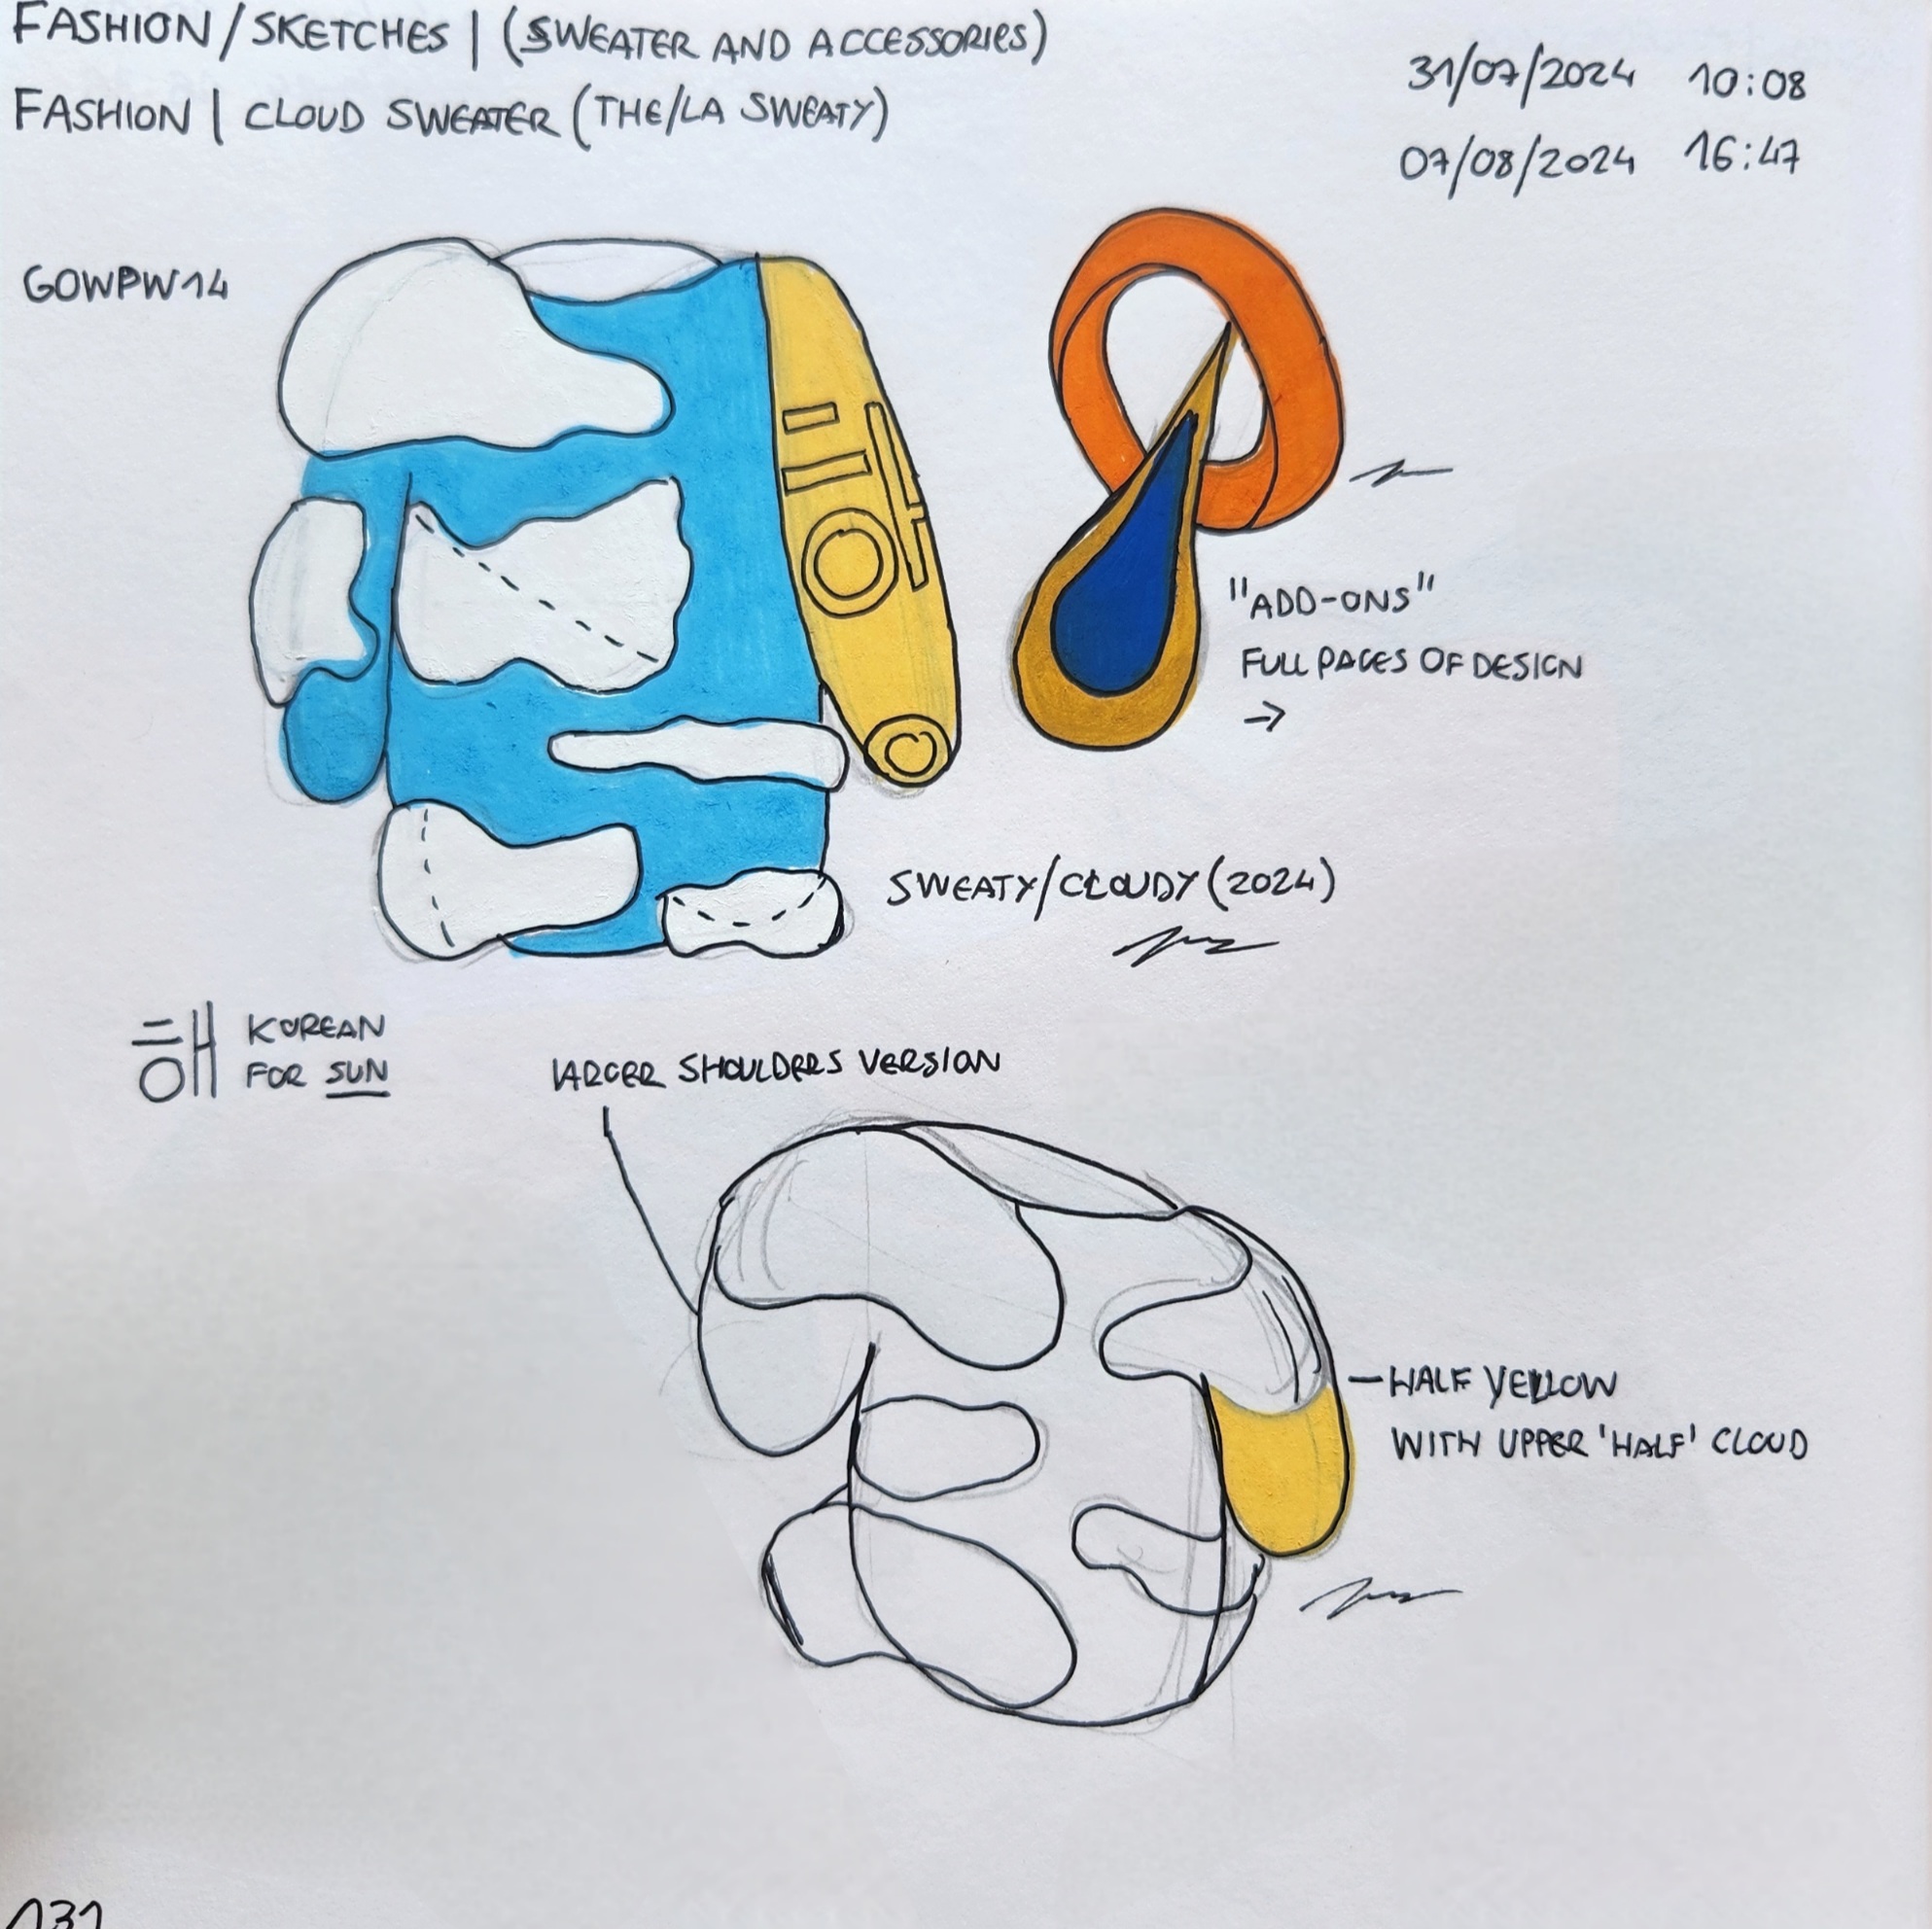 FASHION/SKETCHES | (SWEATER AND ACCESSORIES)
FASHION | CLOUD SWEATER (THE/LA SWEATY)
31/07/2024 10:08
07/08/2024 16:47
GOWPW14
"ADD-ONS"
FULL PAGES OF DESIGN
→
SWEATY/CLOUDY (2024)
해 KOREAN
FOR SUN
LARGER SHOULDERS VERSION
—HALF YELLOW
WITH UPPER 'HALF' CLOUD
131